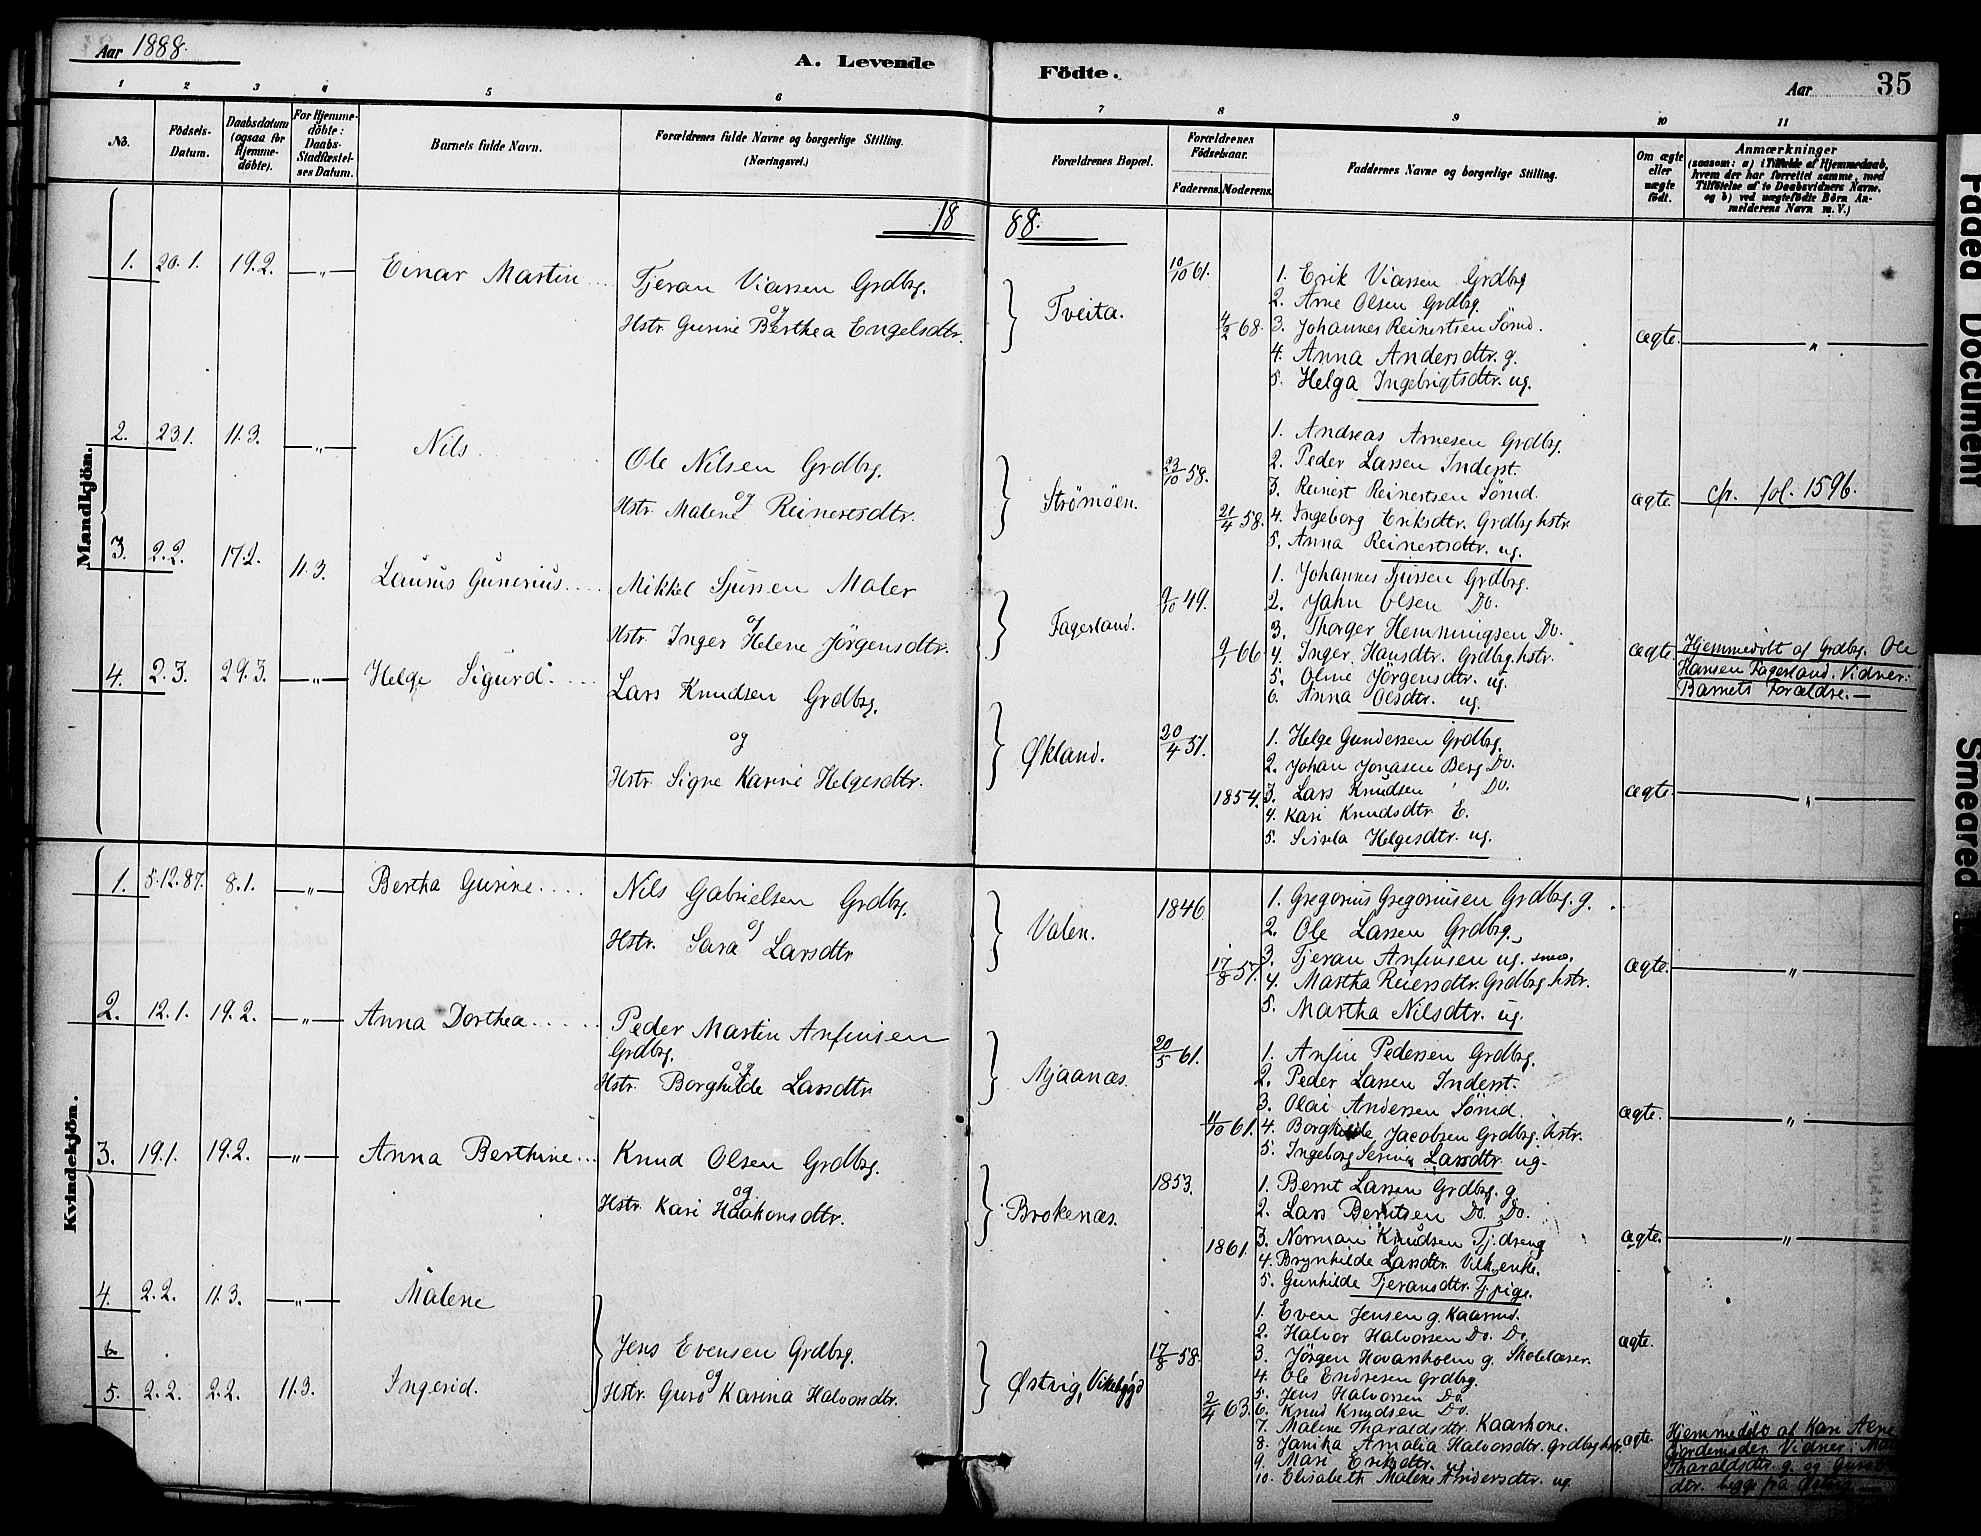 Aar 1888.
A. Levende Födte.
Aar
35
1 2 3 4 5 6 7 8 9 10 11
No.
Födsels-Datum.
Daabsdatum (ogsaa for Hjemme-döbte).
For Hjemme-döbte: Daabs-Stadfæstel-ses Datum.
Barnets fulde Navn.
Forældrenes fulde Navne og borgerlige Stilling. (Næringsvei.)
Forældrenes Bopæl.
Forældrenes Födselsaar.
Faderens. Moderens.
Faddernes Navne og borgerlige Stilling.
Om ægte eller uægte födt.
Anmærkninger
(saasom: a) i Tilfælde af Hjemmedaab, hvem der har forrettet samme, med Tilföielse af to Daabsvidners Navne, og b) ved uægtefödte Börn Anmelderens Navn m. V.)
1888.
Mandkjön.
1. 20.1. 19.2. —„— Einar Martin
Tjeran Viarsen Grdbrg.
og
Hstr. Gurine Berthea Engelsdtr.
Tveita.
10/10 61.
4/2 68.
1. Erik Viarsen Grdbrg
2. Arne Olsen Grdbrg.
3. Johannes Reinertsen Sömd.
4. Anna Andersdtr. g.
5. Helga Ingebrigtsdtr. ug.
ægte. —„—
2. 23.1. 11.3. —„— Nils
Ole Nilsen Grdbrg.
og
Hstr. Malene Reinertsdtr.
Strømöen.
23/10 58.
21/4 58.
1. Andreas Arnesen Grdbrg.
2. Peder Larsen Inderst.
3. Reinert Reinertsen Sömd.
4. Ingeborg Eriksdtr. Grdbrg hstr.
5. Anna Reinertsdtr. ug.
ægte. cfr. fol. 1596.
3. 2.2. 17.2. 11.3. Laurus Gunerius
Mikkel Sjursen Maler
og
Hstr. Inger Helene Jörgensdtr.
Fagerland.
9/10 49.
9/1 66
1. Johannes Sjursen Grdbrg.
2. Jahn Olsen Do.
3. Thorger Hemmingsen Do.
4. Inger Hansdtr. Grdbrg. hstr.
5. Oline Jörgensdtr. ug.
6. Anna Olsdtr. ug.
ægte. Hjemmedöbt af Grdbrg. Ole
Hansen Fagerland. Vidner:
Barnets Forældre.—
4. 2.3. 29.3. —„— Helge Sigurd
Lars Knudsen Grdbrg.
og
Hstr. Signe Karine Helgesdtr.
Økland.
20/4 51.
1854.
1. Helge Gundersen Grdbrg.
2. Johan Jonasen Berg Do.
3. Lars Knudsen Do.
4. Kari Knudsdtr. E.
5. Sissela Helgesdtr. ug.
ægte. —„—
Kvindekjön.
1. 5.12.87. 8.1. —„— Bertha Gurine
Nils Gabrielsen Grdbrg.
og
Hstr. Sara Larsdtr
Valen.
1846
17/8 57.
1. Gregorius Gregoriusen Grdbrg. g.
2. Ole Larsen Grdbrg.
3. Tjeran Anfinsen ug.
4. Martha Reiersdtr. Grdbrg hstr.
5. Martha Nilsdtr. ug.
ægte. —„—
2. 12.1. 19.2. —„— Anna Dorthea
Peder Martin Anfinsen
Grdbrg.
og
Hstr. Borghilde Larsdtr
Mjaanæs.
20/5 61.
11/10 61.
1. Anfin Pedersen Grdbrg.
2. Peder Larsen Inderst.
3. Olai Andersen Sömd.
4. Borghilde Jacobsen Grdbrg. hstr.
5. Ingeborg Serina Larsdtr ug.
ægte. —„—
3. 19.1. 19.2. —„— Anna Berthine
Knud Olsen Grdbrg.
og
Hstr. Kari Haakonsdtr.
Brokenæs.
1853.
1861.
1. Bernt Larsen Grdbrg. g.
2. Lars Berntsen Do. Do.
3. Norman Knudsen Tj. dreng
4. Brynhilde Larsdtr. Vilk. enke.
5. Gunhilde Tjeransdtr. Tj. pige.
ægte. —„—
4. 2.2. 11.3. —„— Malene
5. 2.2. 2.2. 11.3. Ingerid.
Jens Evensen Grdbrg.
og
Hstr. Guro Karina Halvorsdtr.
Østvig, Vikebygd
17/8 58.
2/4 63.
1. Even Jensen g. Kaarmd.
2. Halvor Halvorsen Do. Do.
3. Jörgen Hovarsholm g. Skolelærer.
4. Ole Endresen Grdbrg.
5. Jens Halvorsen Do.
6. Knud Knudsen Do.
7. Malene Tharaldsdtr. Kaarkone.
8. Janika Amalia Halvorsdtr. Grdbrg hstr.
9. Mari Eriksdtr. ug
10. Elisabeth Malene Andersdtr. ug
ægte.
ægte. Hjemmedöbt af Kari Arne
Jordemoder. Vidner:
Tharaldsdtr. g. og
begge fra
Faded Document
Smeared